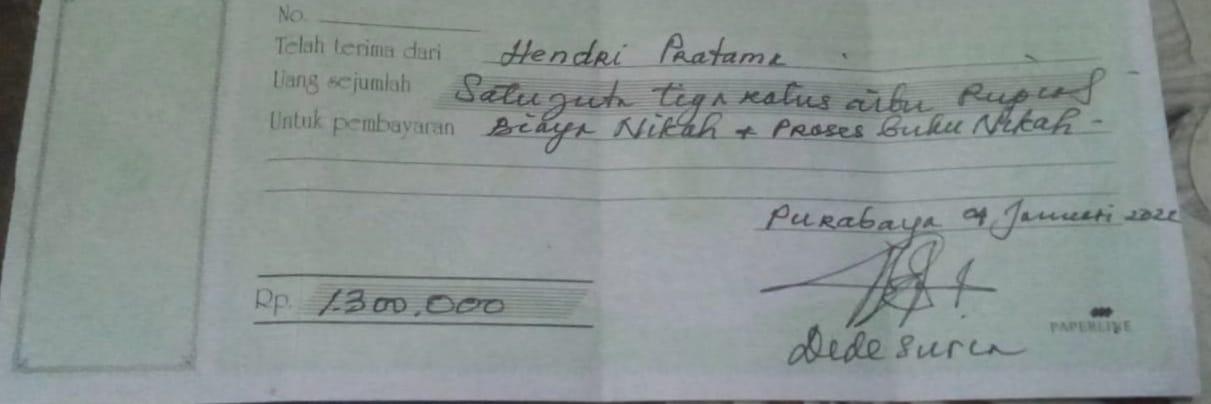 No.
Telah terima dari Hendri Pratama
Uang sejumlah Satu juta tiga ratus ribu Rupiah
Untuk pembayaran Biaya Nikah + Proses Buku Nikah -
Purabaya 04 Januari 2022
Rp. 1.300,000
PAPERLINE
Dede Surya